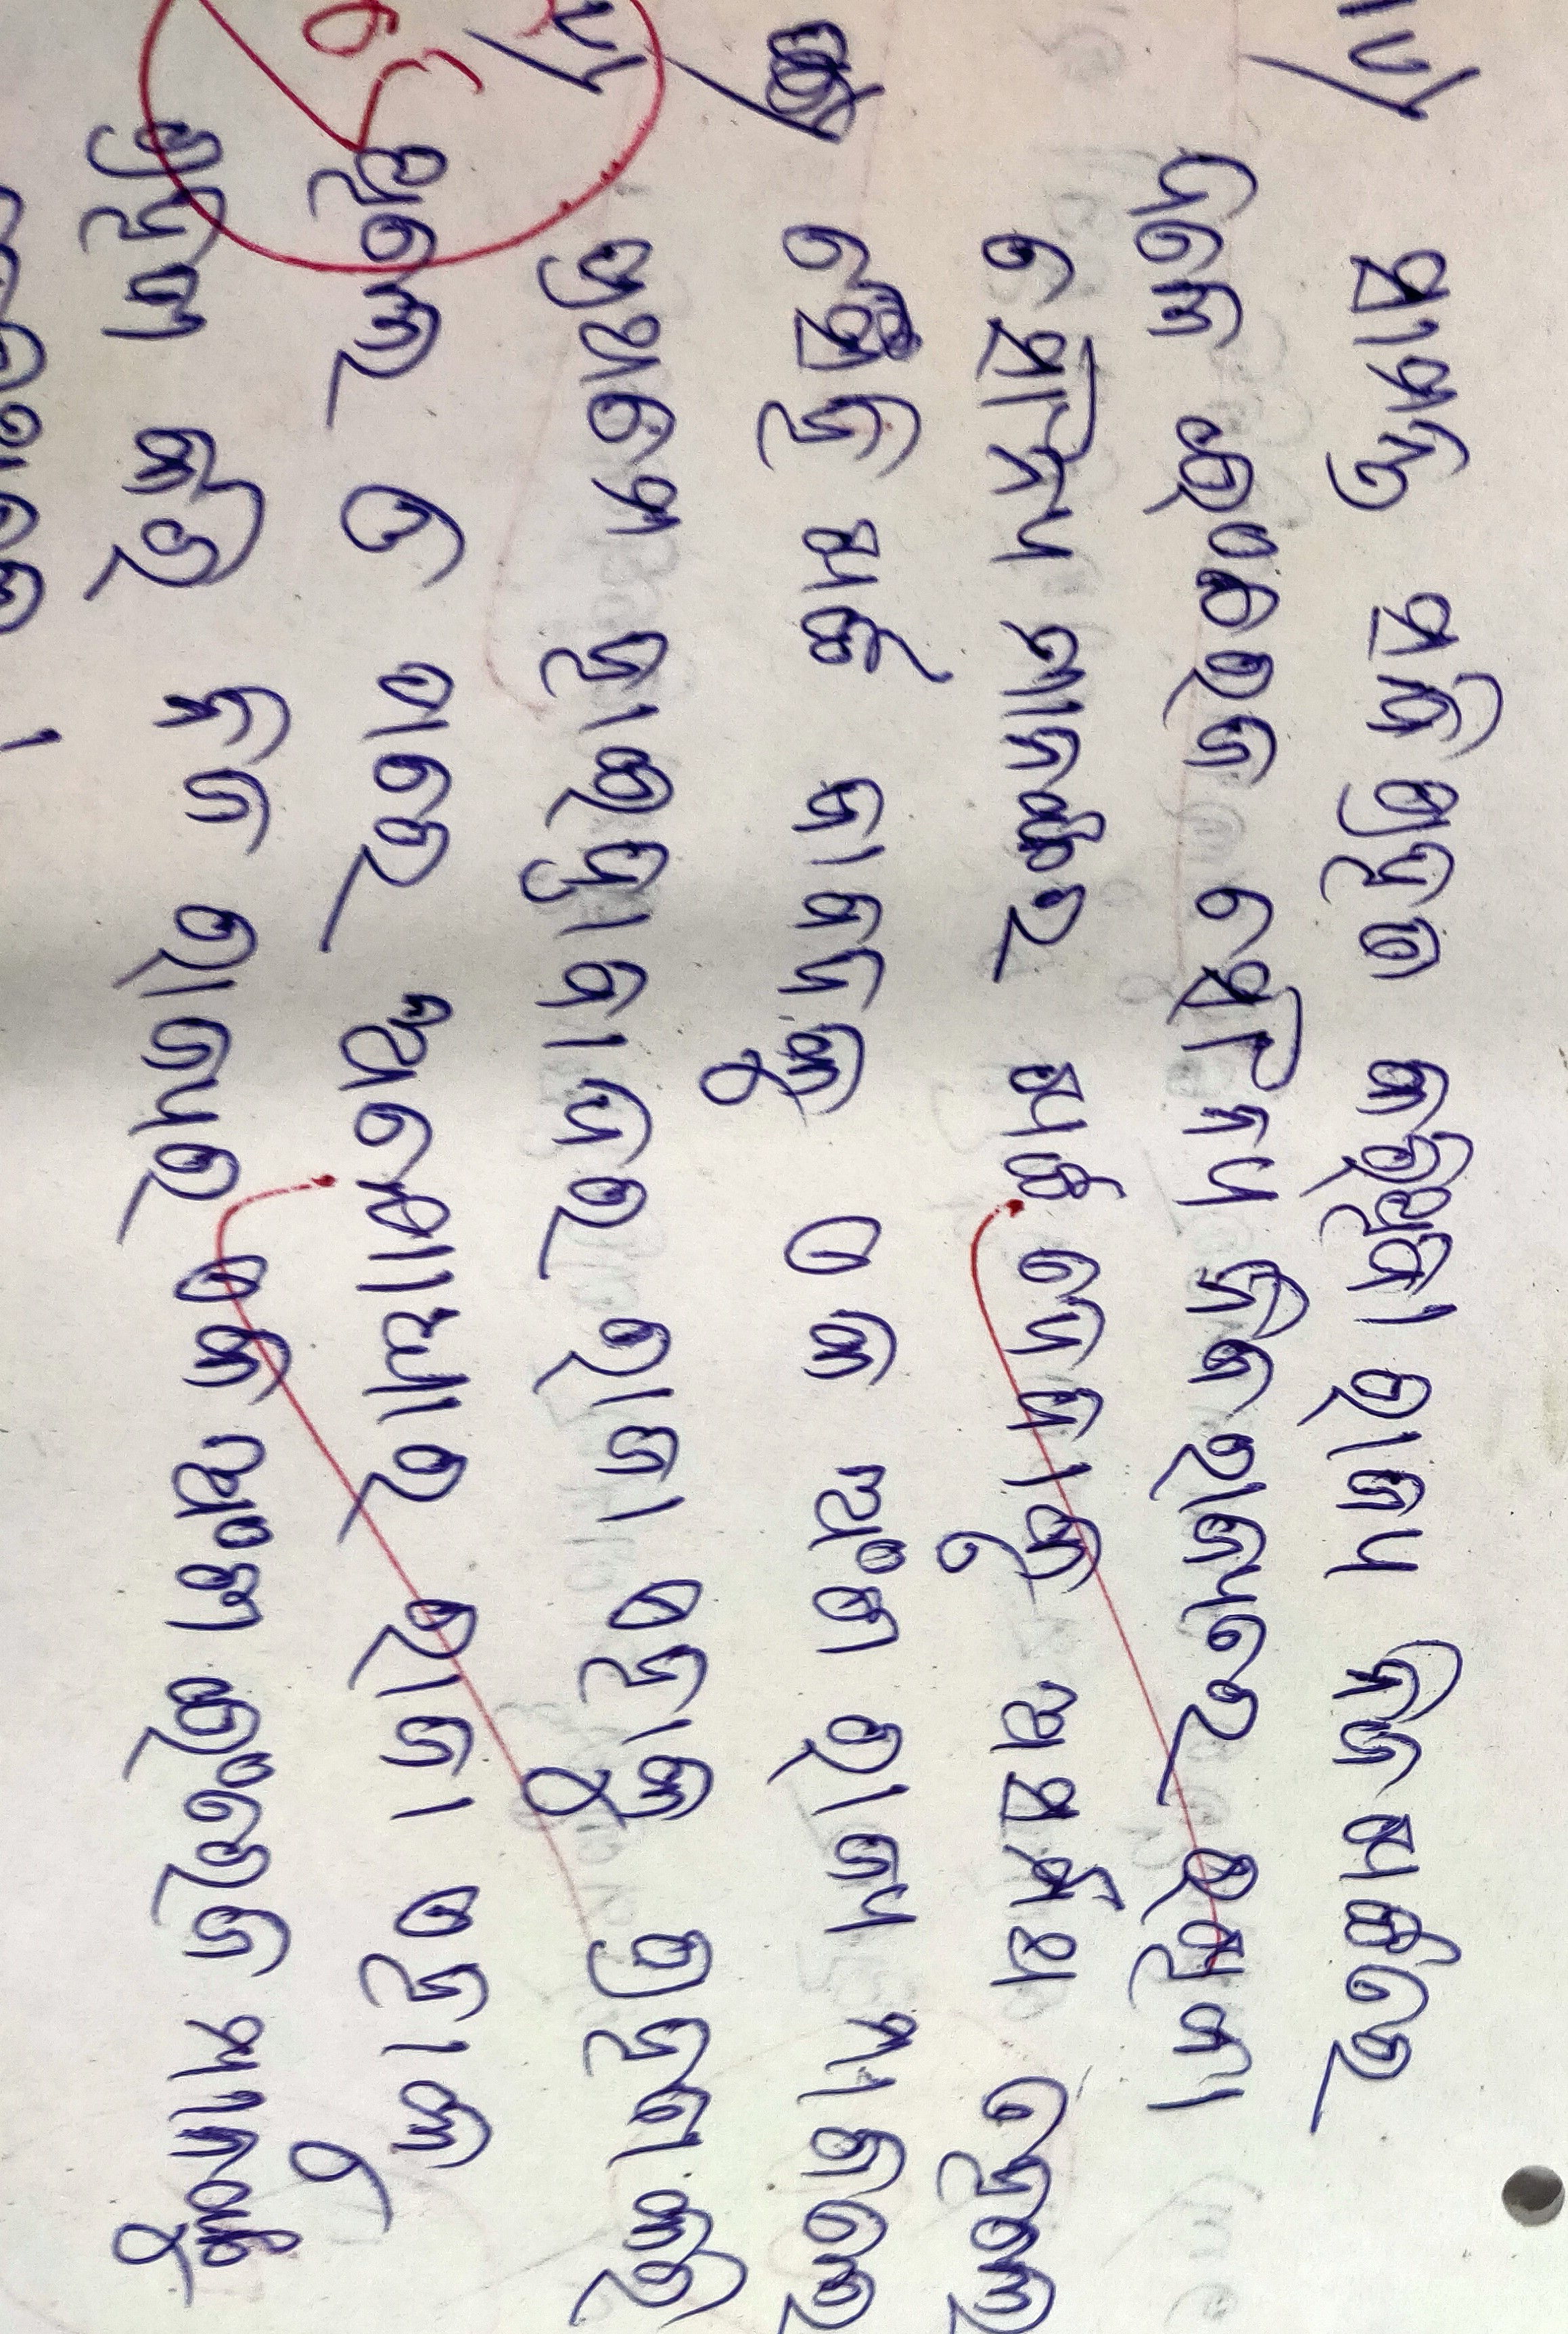 iv) ସାମନ୍ତ ସନ୍ଧି ଗ୍ରହଣ କରିଥିବା ରାଜ୍ୟ ନିଜ ଖର୍ଚ୍ଚରେ
ଦିଲେ ଇଂରେଜ ସୈାନ୍ୟ ନିଜ ରାଜ୍ୟରେ ରଖିବା
ସୈାନ୍ୟ ମାନଙ୍କର ଖର୍ଚ୍ଚ ଦେବାକୁ ଅସର୍ମଥ ହେଲେ
ସେହି ଖର୍ଚ୍ଚ ବାବଦକୁ ଏକ ଅଂଶ ରାଜ୍ୟ ମାଗିଲେ
v) ପ୍ରଥମେ ହାଇଦ୍ରାବାଦର ରାଜା ଏହାକୁ ଗ୍ରହଣ କରି
ଥିଲେ ଓ ପରେ ଅଯୋଧ୍ୟାର ରାଜା ଏହାକୁ
ଗ୍ରହଣ କରି ନିଜ ରାଜ୍ୟର ଏକ ଅଂଶ ଇଂରେଜ ମାନଙ୍କୁ